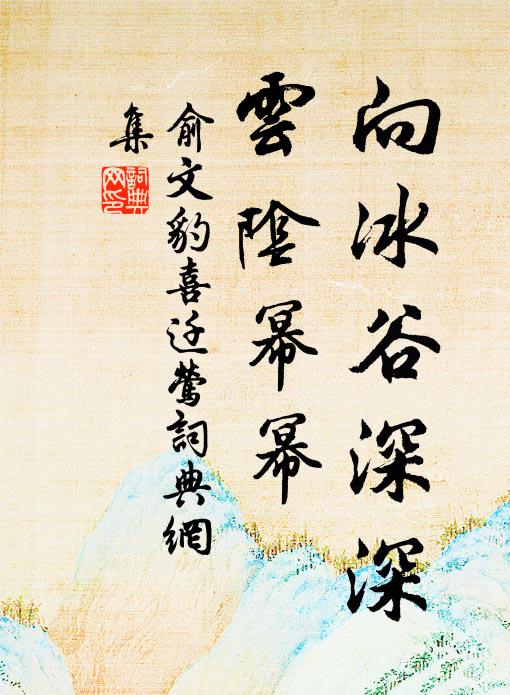 向冰谷深深
雲陰冪冪
俞文豹喜迁鶯詞典網
集
詞典网印